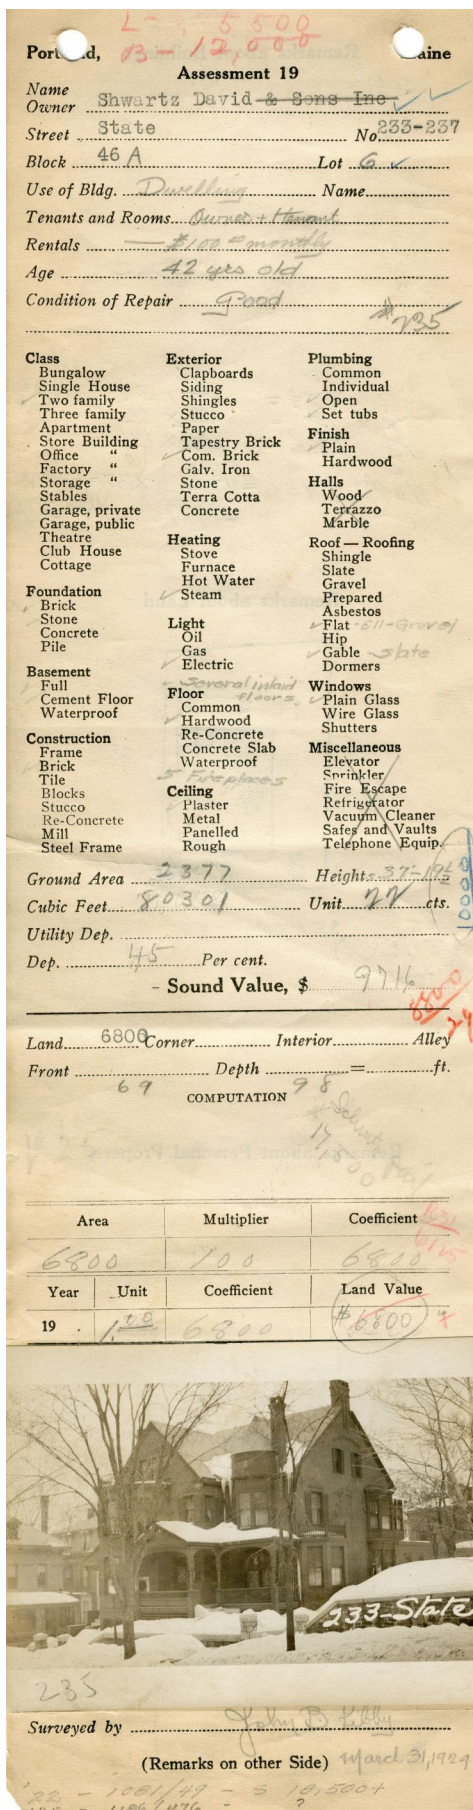 L-. 5500
B-12,000
Portland, Maine
Assessment 19
Name
Owner Shwartz David & Sons Inc
Street State No 233-237
Block 46 A Lot 6
Use of Bldg. Dwelling Name
Tenants and Rooms Owner + tenant
Rentals — $100 monthly
Age 42 yrs old
Condition of Repair Good
$235
Class
Bungalow
Single House
Two family
Three family
Apartment
Store Building
Office "
Factory "
Storage "
Stables
Garage, private
Garage, public
Theatre
Club House
Cottage
Foundation
Brick
Stone
Concrete
Pile
Basement
Full
Cement Floor
Waterproof
Construction
Frame
Brick
Tile
Blocks
Stucco
Re-Concrete
Mill
Steel Frame
Exterior
Clapboards
Siding
Shingles
Stucco
Paper
Tapestry Brick
Com. Brick
Galv. Iron
Stone
Terra Cotta
Concrete
Heating
Stove
Furnace
Hot Water
Steam
Light
Oil
Gas
Electric
Several inlaid
floors
Floor
Common
Hardwood
Re-Concrete
Concrete Slab
Waterproof
5 Fireplaces
Ceiling
Plaster
Metal
Panelled
Rough
Plumbing
Common
Individual
Open
Set tubs
Finish
Plain
Hardwood
Halls
Wood
Terrazzo
Marble
Roof — Roofing
Shingle
Slate
Gravel
Prepared
Asbestos
Flat - Ell-Gravel
Hip
Gable - Slate
Dormers
Windows
Plain Glass
Wire Glass
Shutters
Miscellaneous
Elevator
Sprinkler
Fire Escape
Refrigerator
Vacuum Cleaner
Safes and Vaults
Telephone Equip.
Ground Area 2377 Height 37-19½
Cubic Feet 80301 Unit 22 cts.
10000
Utility Dep.
Dep. 45 Per cent.
- Sound Value, $ 9716
8800
29
Land 6800 Corner Interior Alley
Front Depth = ft.
69 98
COMPUTATION
17800
Area Multiplier Coefficient
6800 100 6800
Year Unit Coefficient Land Value
19 1.00 6800 $6800
233-State
235
Surveyed by John B Libby
(Remarks on other Side) March 31, 1924
'22 - 1081/49 - $ 18,500+